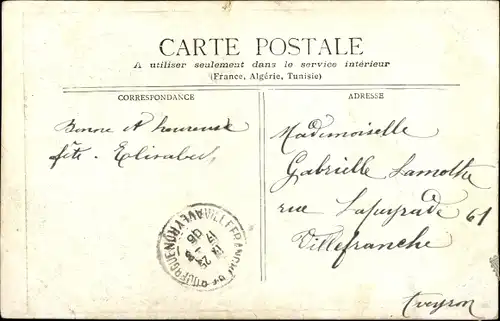 CARTE POSTALE
A utiliser seulement dans le service intérieur
(France, Algérie, Tunisie)
CORRESPONDANCE
ADRESSE
Bonne et heureuse
fête. Elisabeth
Mademoiselle
Gabrielle Lamothe
rue Lapeyrade 61
Villefranche
Aveyron
VILLEFRANCHE DE ROUERGUE AVEYRON
17
25
06